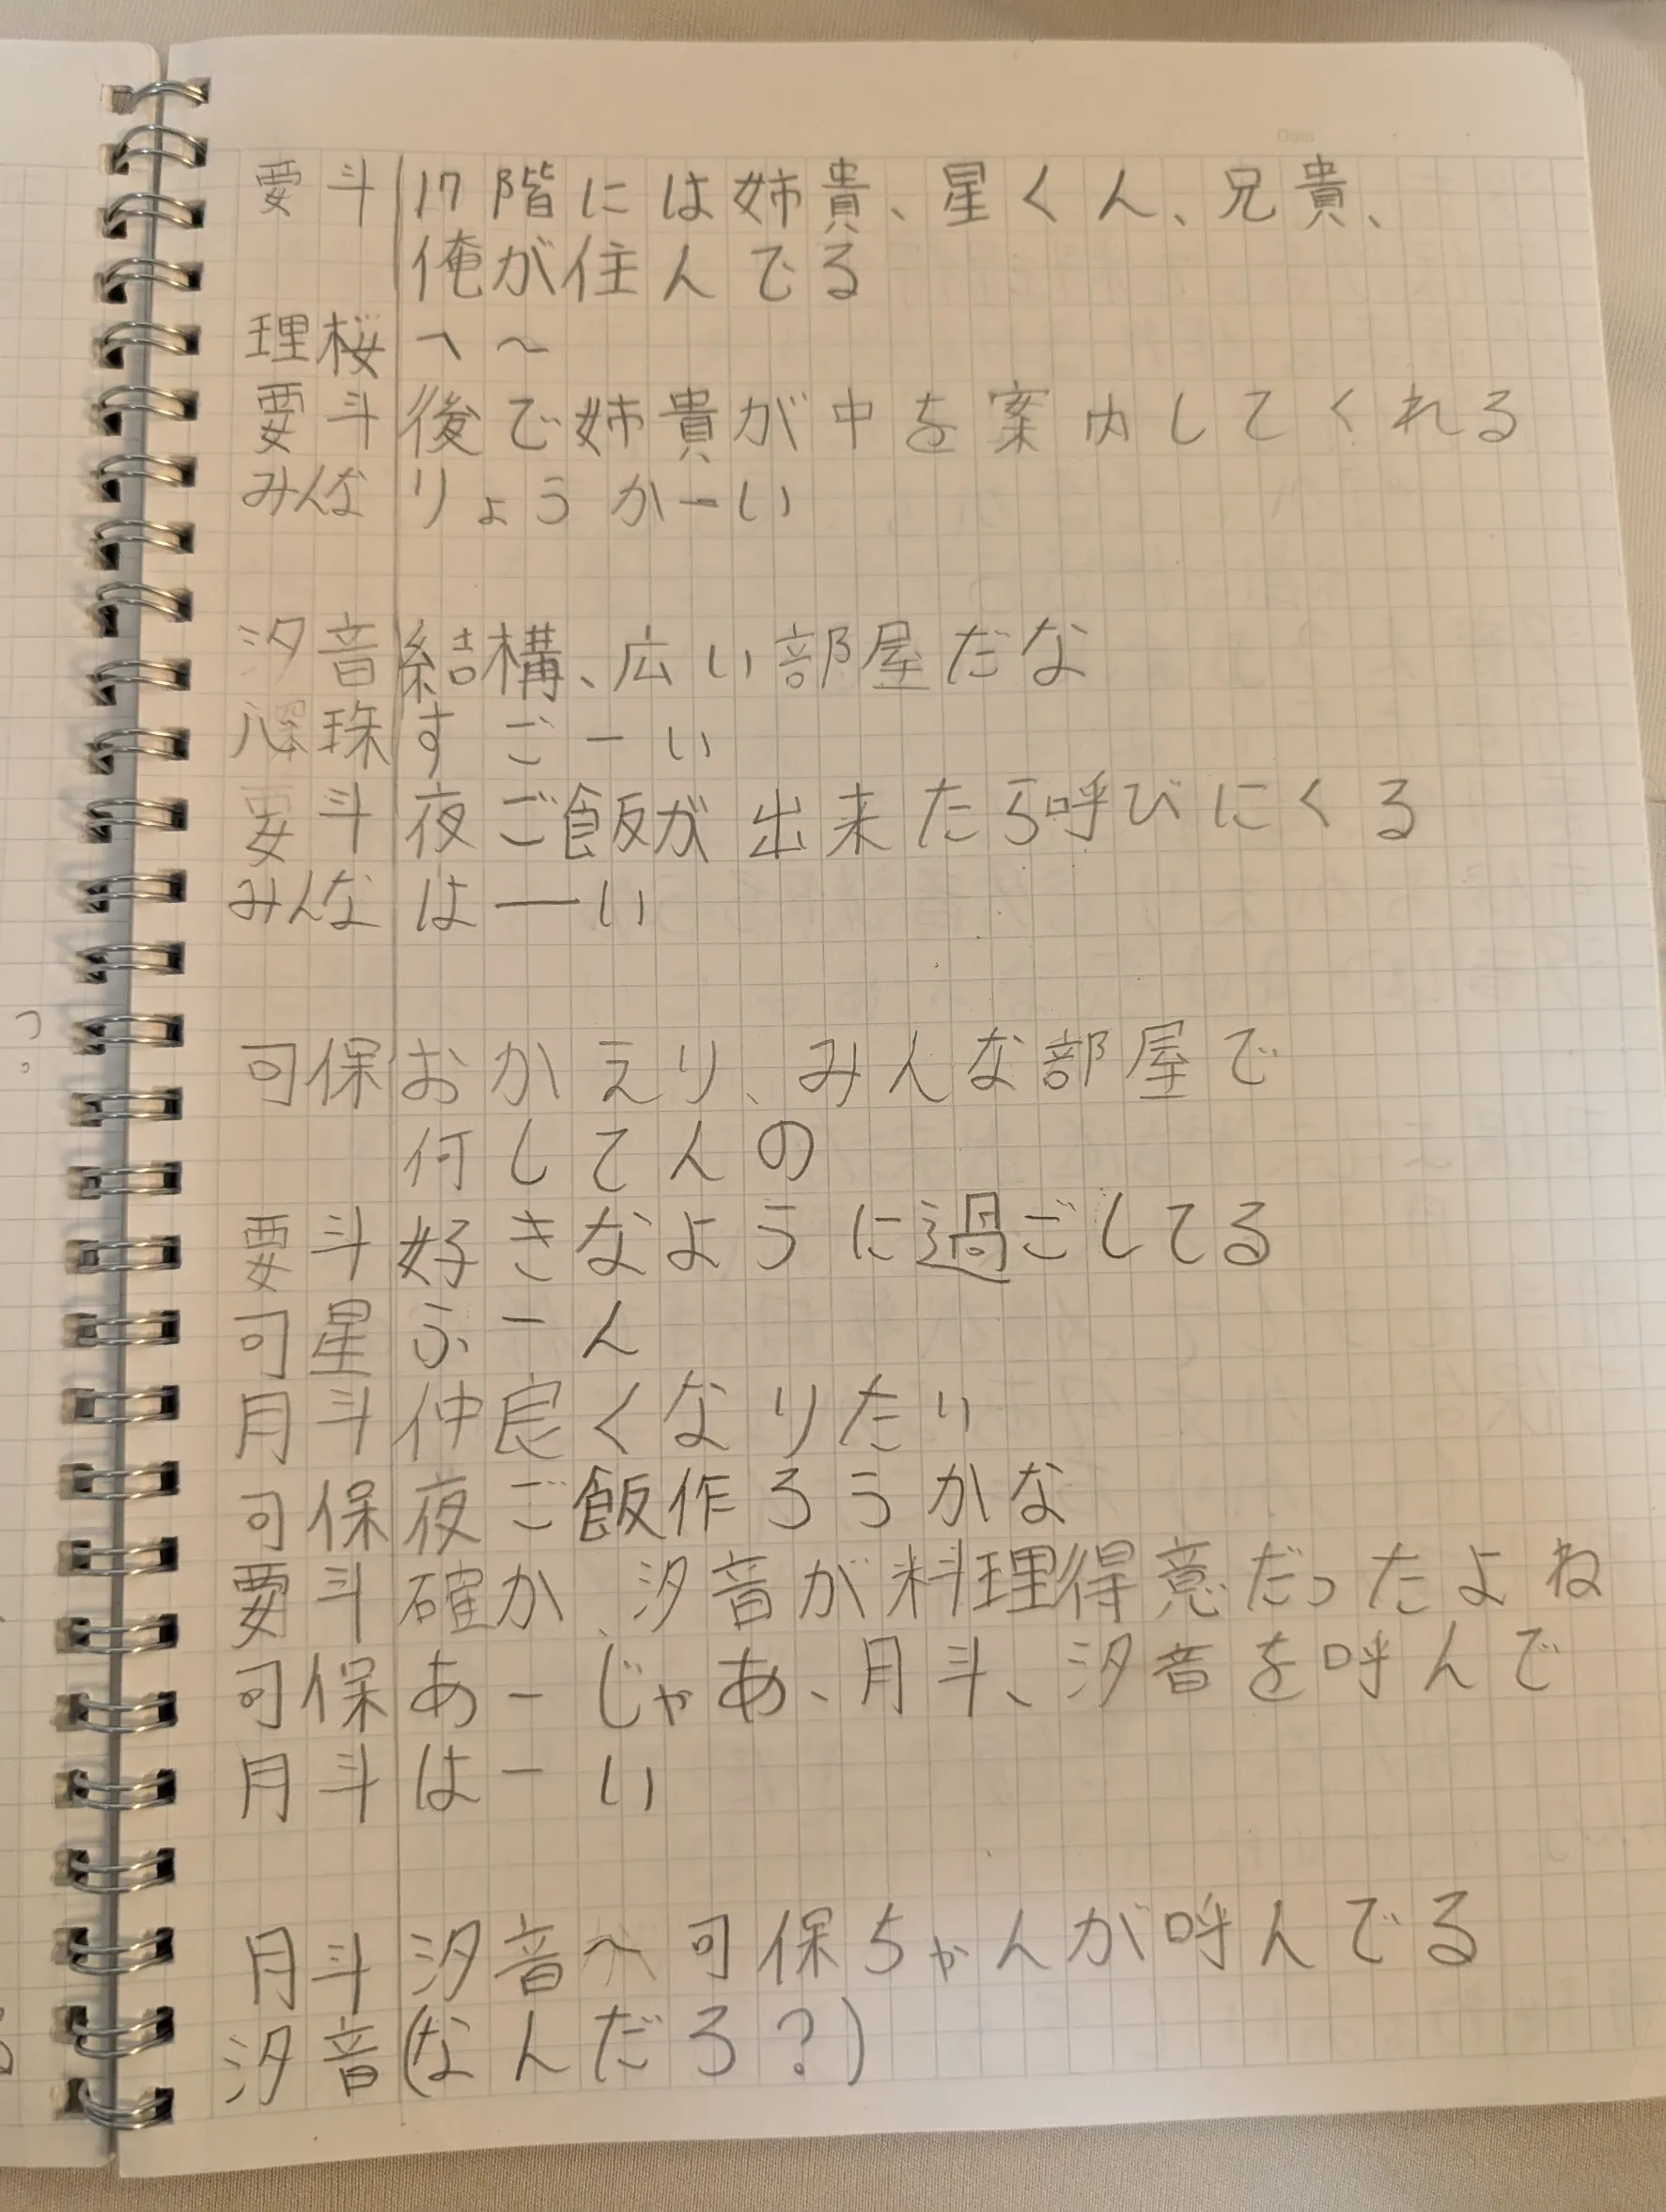 要斗 17階には姉貴、星くん、兄貴、
俺が住んでる
理桜 へ〜
要斗 後で姉貴が中を案内してくれる
みんな りょうかーい
汐音 結構、広い部屋だな
珠 すごーい
要斗 夜ご飯が出来たら呼びにくる
みんな はーい
可保 おかえり、みんな部屋で
何してんの
要斗 好きなように過ごしてる
可星 ふーん
月斗 仲良くなりたい
可保 夜ご飯作ろうかな
要斗 確か、汐音が料理得意だったよね
可保 あーじゃあ、月斗、汐音を呼んで
月斗 はーい
月斗 汐音へ可保ちゃんが呼んでる
汐音 (なんだろ?)